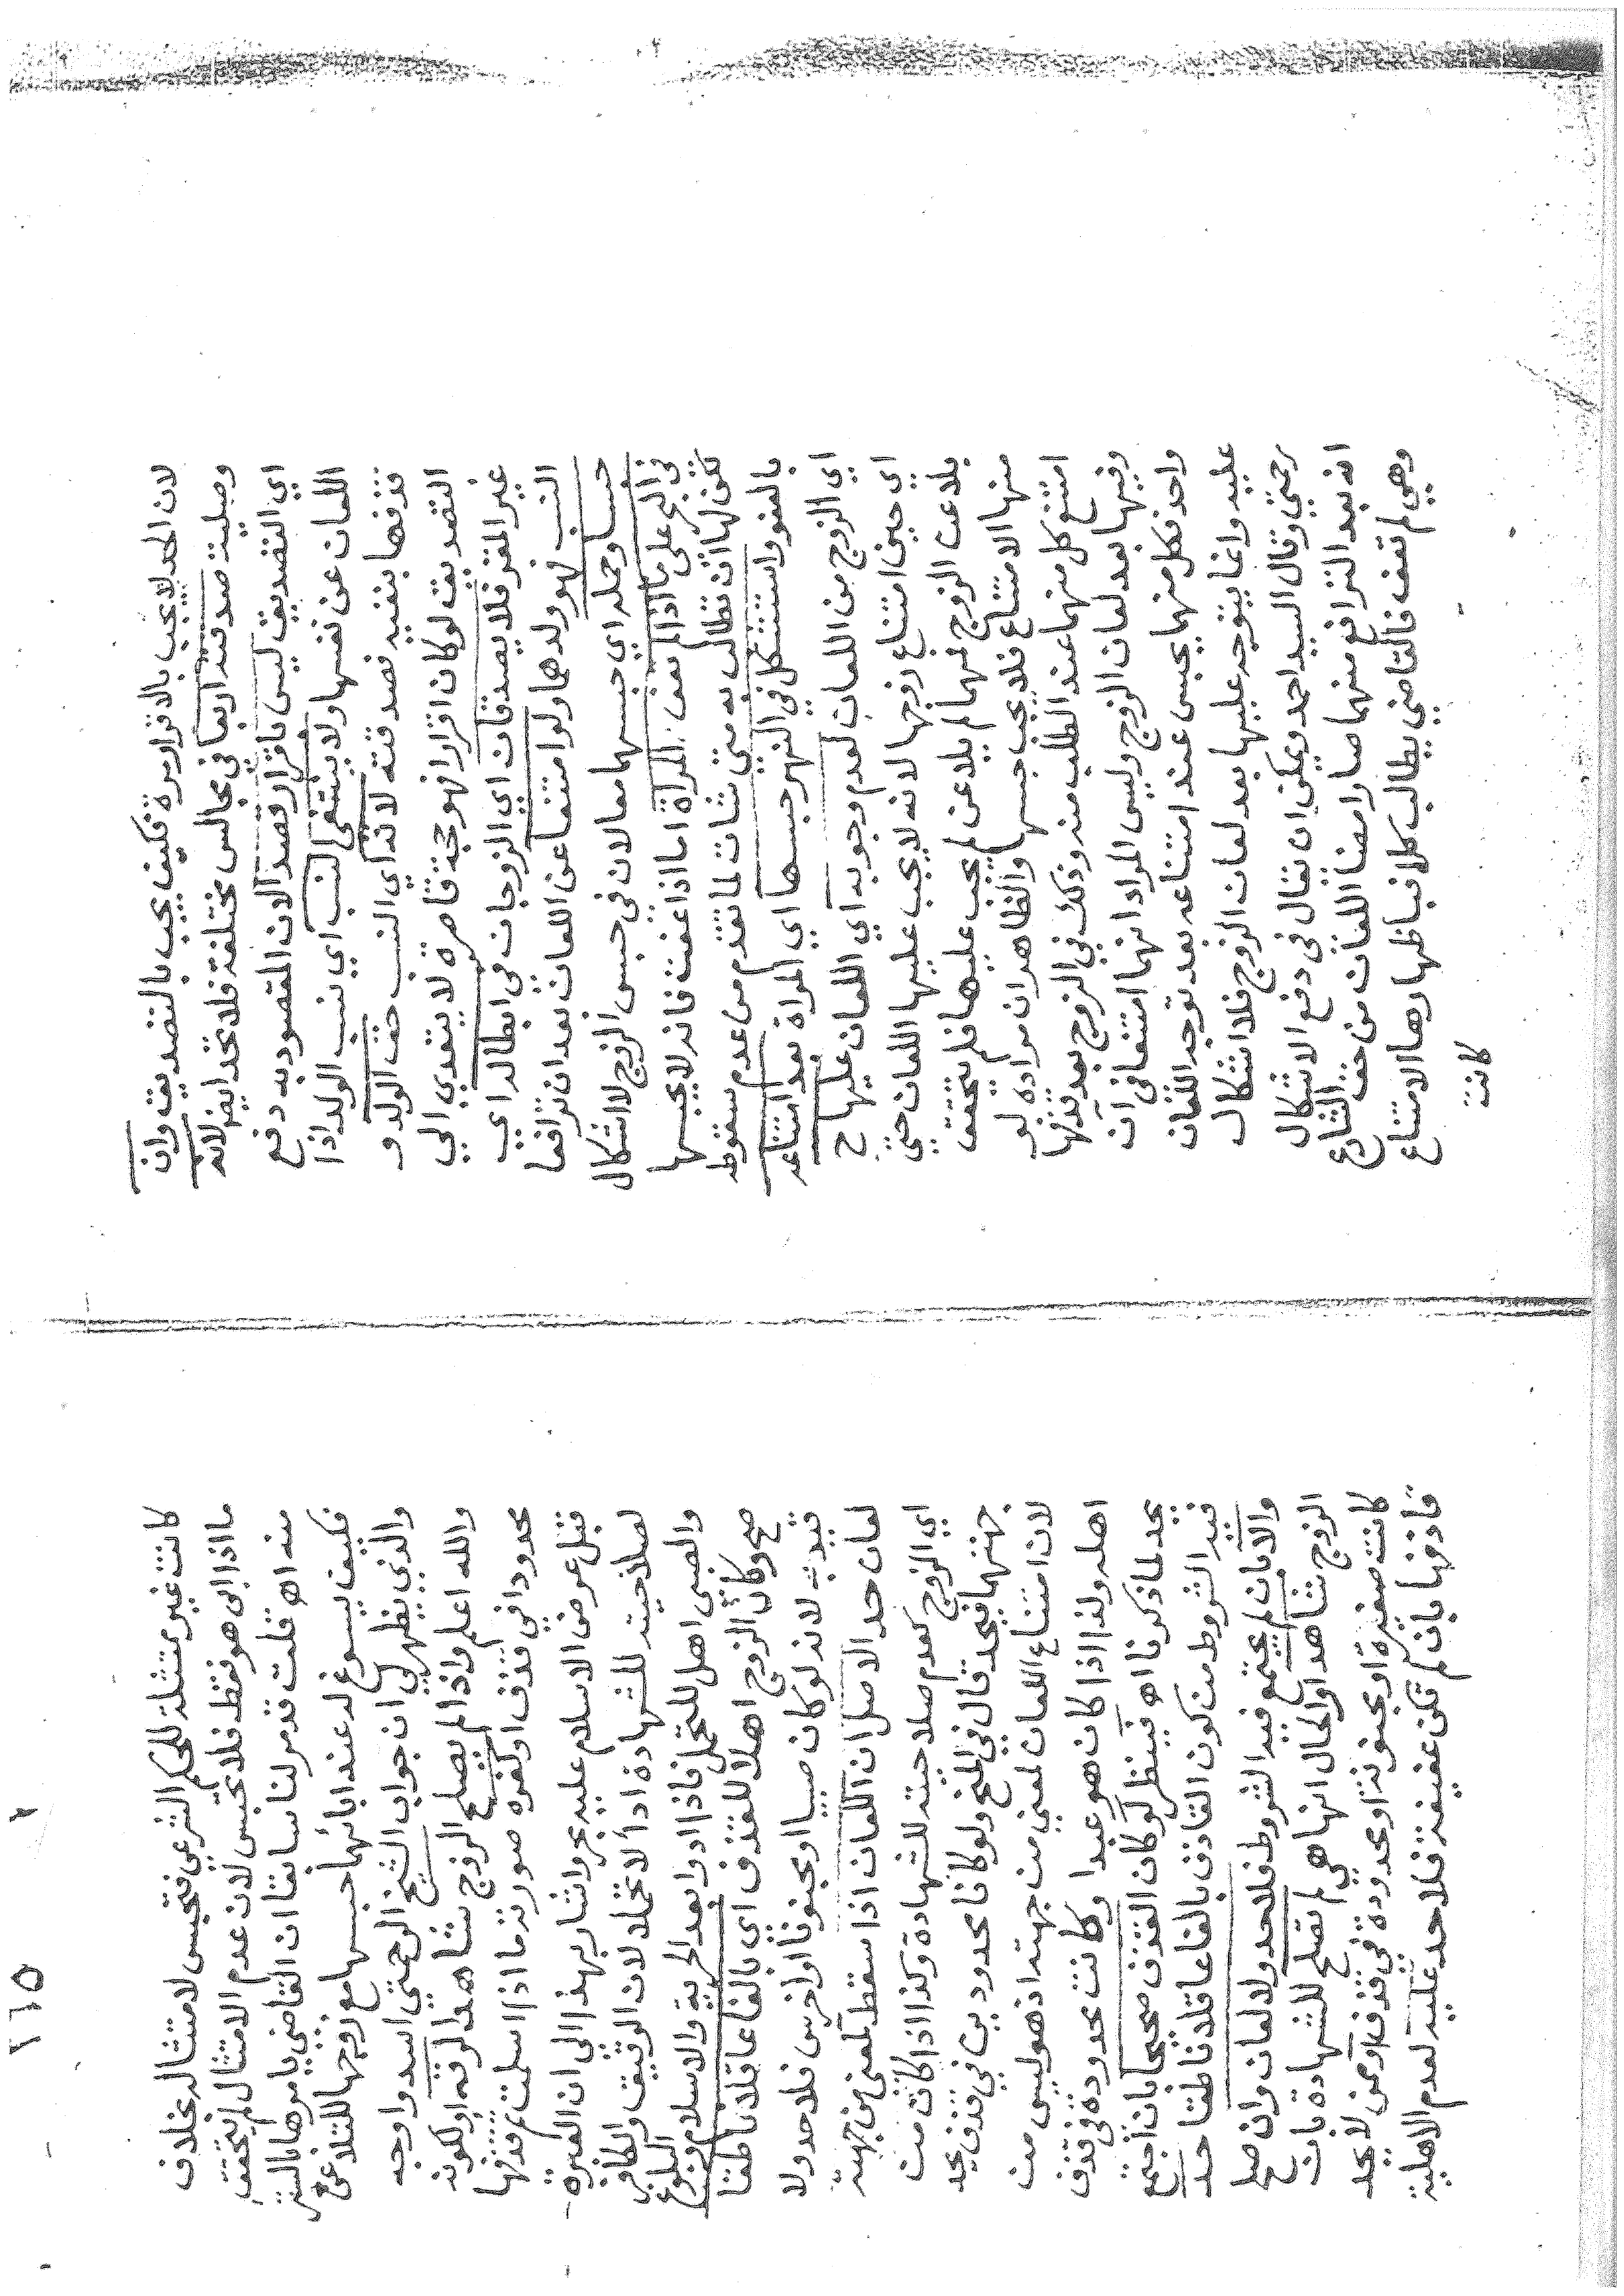 لان الحد لايجب بالاقرار مرة فكيف يجب بالتصديق وان
وصلية صدقته اربعا في مجالس مختلفة فلا تحد ايض لانه
اي التصديق ليس باقرار قصدا لان المقصود به دفع
اللعان عن نفسها ولا ينتفي النسب اي نسب الولد اذا
قذفها بنفيه فصدقته لانه اي النسب حق الولد و
التصديق لو كان اقرارا فهو حجة قاصرة لا يتعدي الي
غير المقر فلا يصدقان اي الزوجان في ابطاله اي
النسب فهو ولدهما ولو امتنعا عن اللعان بعد ان ترافعا
حبسا وحمله اي حبسهما معا لان في حبس الزوج لا اشكال
في البحر على ما اذا لم تعف المراة اما اذا عفت فانه لا يحبسها
لكن لها ان تطالب به متي شات لما تقدم من عدم سقوط
بالعفو واستشكل في النهر حبسها اي المراة بعد امتناعه
اي الزوج من اللعان لعدم وجوبه اي اللعان عليها ح
اي حين امتناع زوجها لانه لايجب عليها اللعان حتي
يلاعن الزوج فمهما لم يلاعن لم يجب عليها فلم يتحقق
منها الامتناع فلا يجب حبسها والظاهر ان مراده لو
امتنع كل منهما عند الطلب منه وذلك في الزوج بعد قذفها
وفيها بعد لعان الزوج وليس المراد انهما امتنعا في ان
واحد فكل منهما يحبس عند امتناعه بعد توجه اللعان
عليه وانما يتوجه عليها بعد لعان الزوج فلا اشكال
رحمتي وقال السيد احمد ويمكن ان يقال في دفع الاشكال
انه بعد الترافع منهما صار امضا اللعان من حق الشارع
وهي لم تعف فالقاضي يطالب كلا فباظهارها الامتناع
كانت
كانت غير ممتثلة للحكم الشرعي فتحبس لامتثاله بخلاف
ما اذا ابى هو فقط فلا تحبس لان عدم الامتثال لم يتحقق
منه اهـ قلت قد مر لنا سابقا ان القاضي يامرها بالستر
فكيف يسوغ له عند ابائهما حبسها مع زوجها للتلاعن
والذي يظهر لي ان جواب الشيخ الرحمتي اسد واوجه
والله اعلم واذا لم يصلح الزوج شاهدا لرقه او لكونه
محدودا في قذف او لكفره صورته ما اذا اسلمت ثم قذفها
قبل عرض الاسلام عليه بحر واشار بهذا الى ان العبرة
لصلاحيته للشهادة اداء لا تحملا لان الرقيق والكافر
والصبي اهل للتحمل فاذا ادوا بعد الحرية والاسلام والبلوغ
صح وكان الزوج اهلا للقذف اي بالغا عاقلا ناطقا
قيد به لانه لو كان صبيا او مجنونا او اخرس فلا حد ولا
لعان حد الاصل ان اللعان اذا سقط لمعنى من جهته
اي الزوج كعدم صلاحيته للشهادة وكذا اذا كان من
جهتهما فيحد قال في المنح ولو كانا محدودين في قذف يحد
لان امتناع اللعان لمعني من جهته اذ هو ليس من
اهله ولذا اذا كان هو عبدا وكانت محدودة في قذف
يحد لما ذكرنا اهـ فينظر لو كان القذف صحيحا بان اجتمع
فيه الشروط من كون القاذف بالغا عاقلا ناطقا حد
والا بان لم يجتمع فيه الشروط فلا حد ولا لعان وان صلح
الزوج شاهدا والحال انها هي لم تصلح للشهادة بان
كانت صغيرة او مجنونة او محدودة في قذف او ممن لا يحد
قاذفها بان لم تكن عفيفة فلا حد عليه لعدم الاهلية
١٦٥